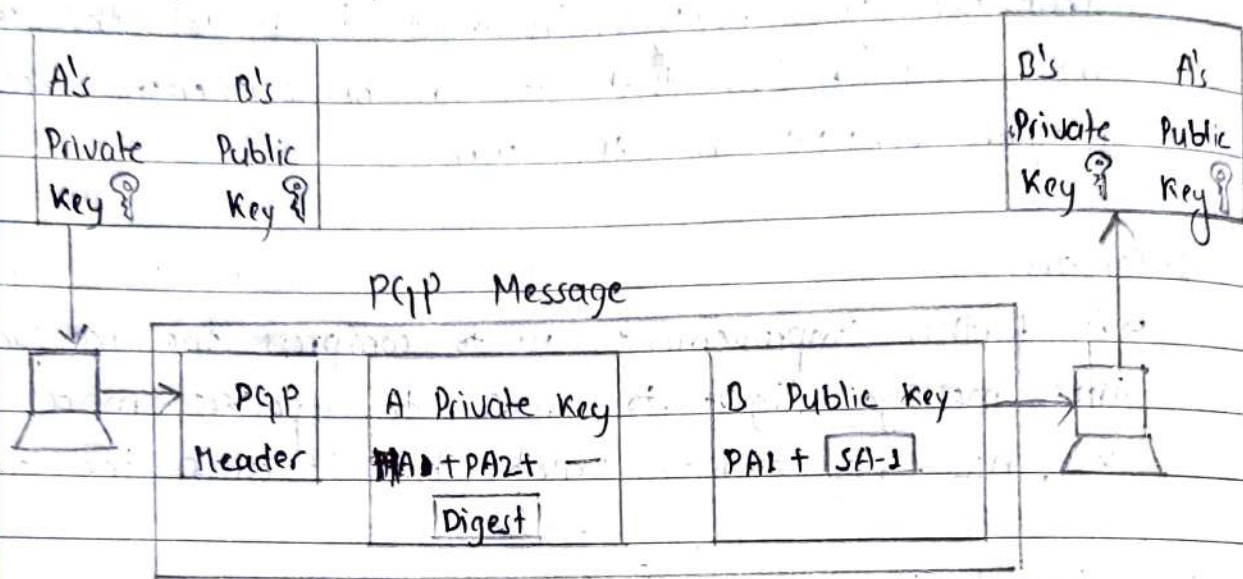 A's B's
Private Public
Key Key
B's A's
Private Public
Key Key
PGP Message
PGP
Header
A Private Key
+PA2+ —
Digest
B Public Key
PA1 + SA-1